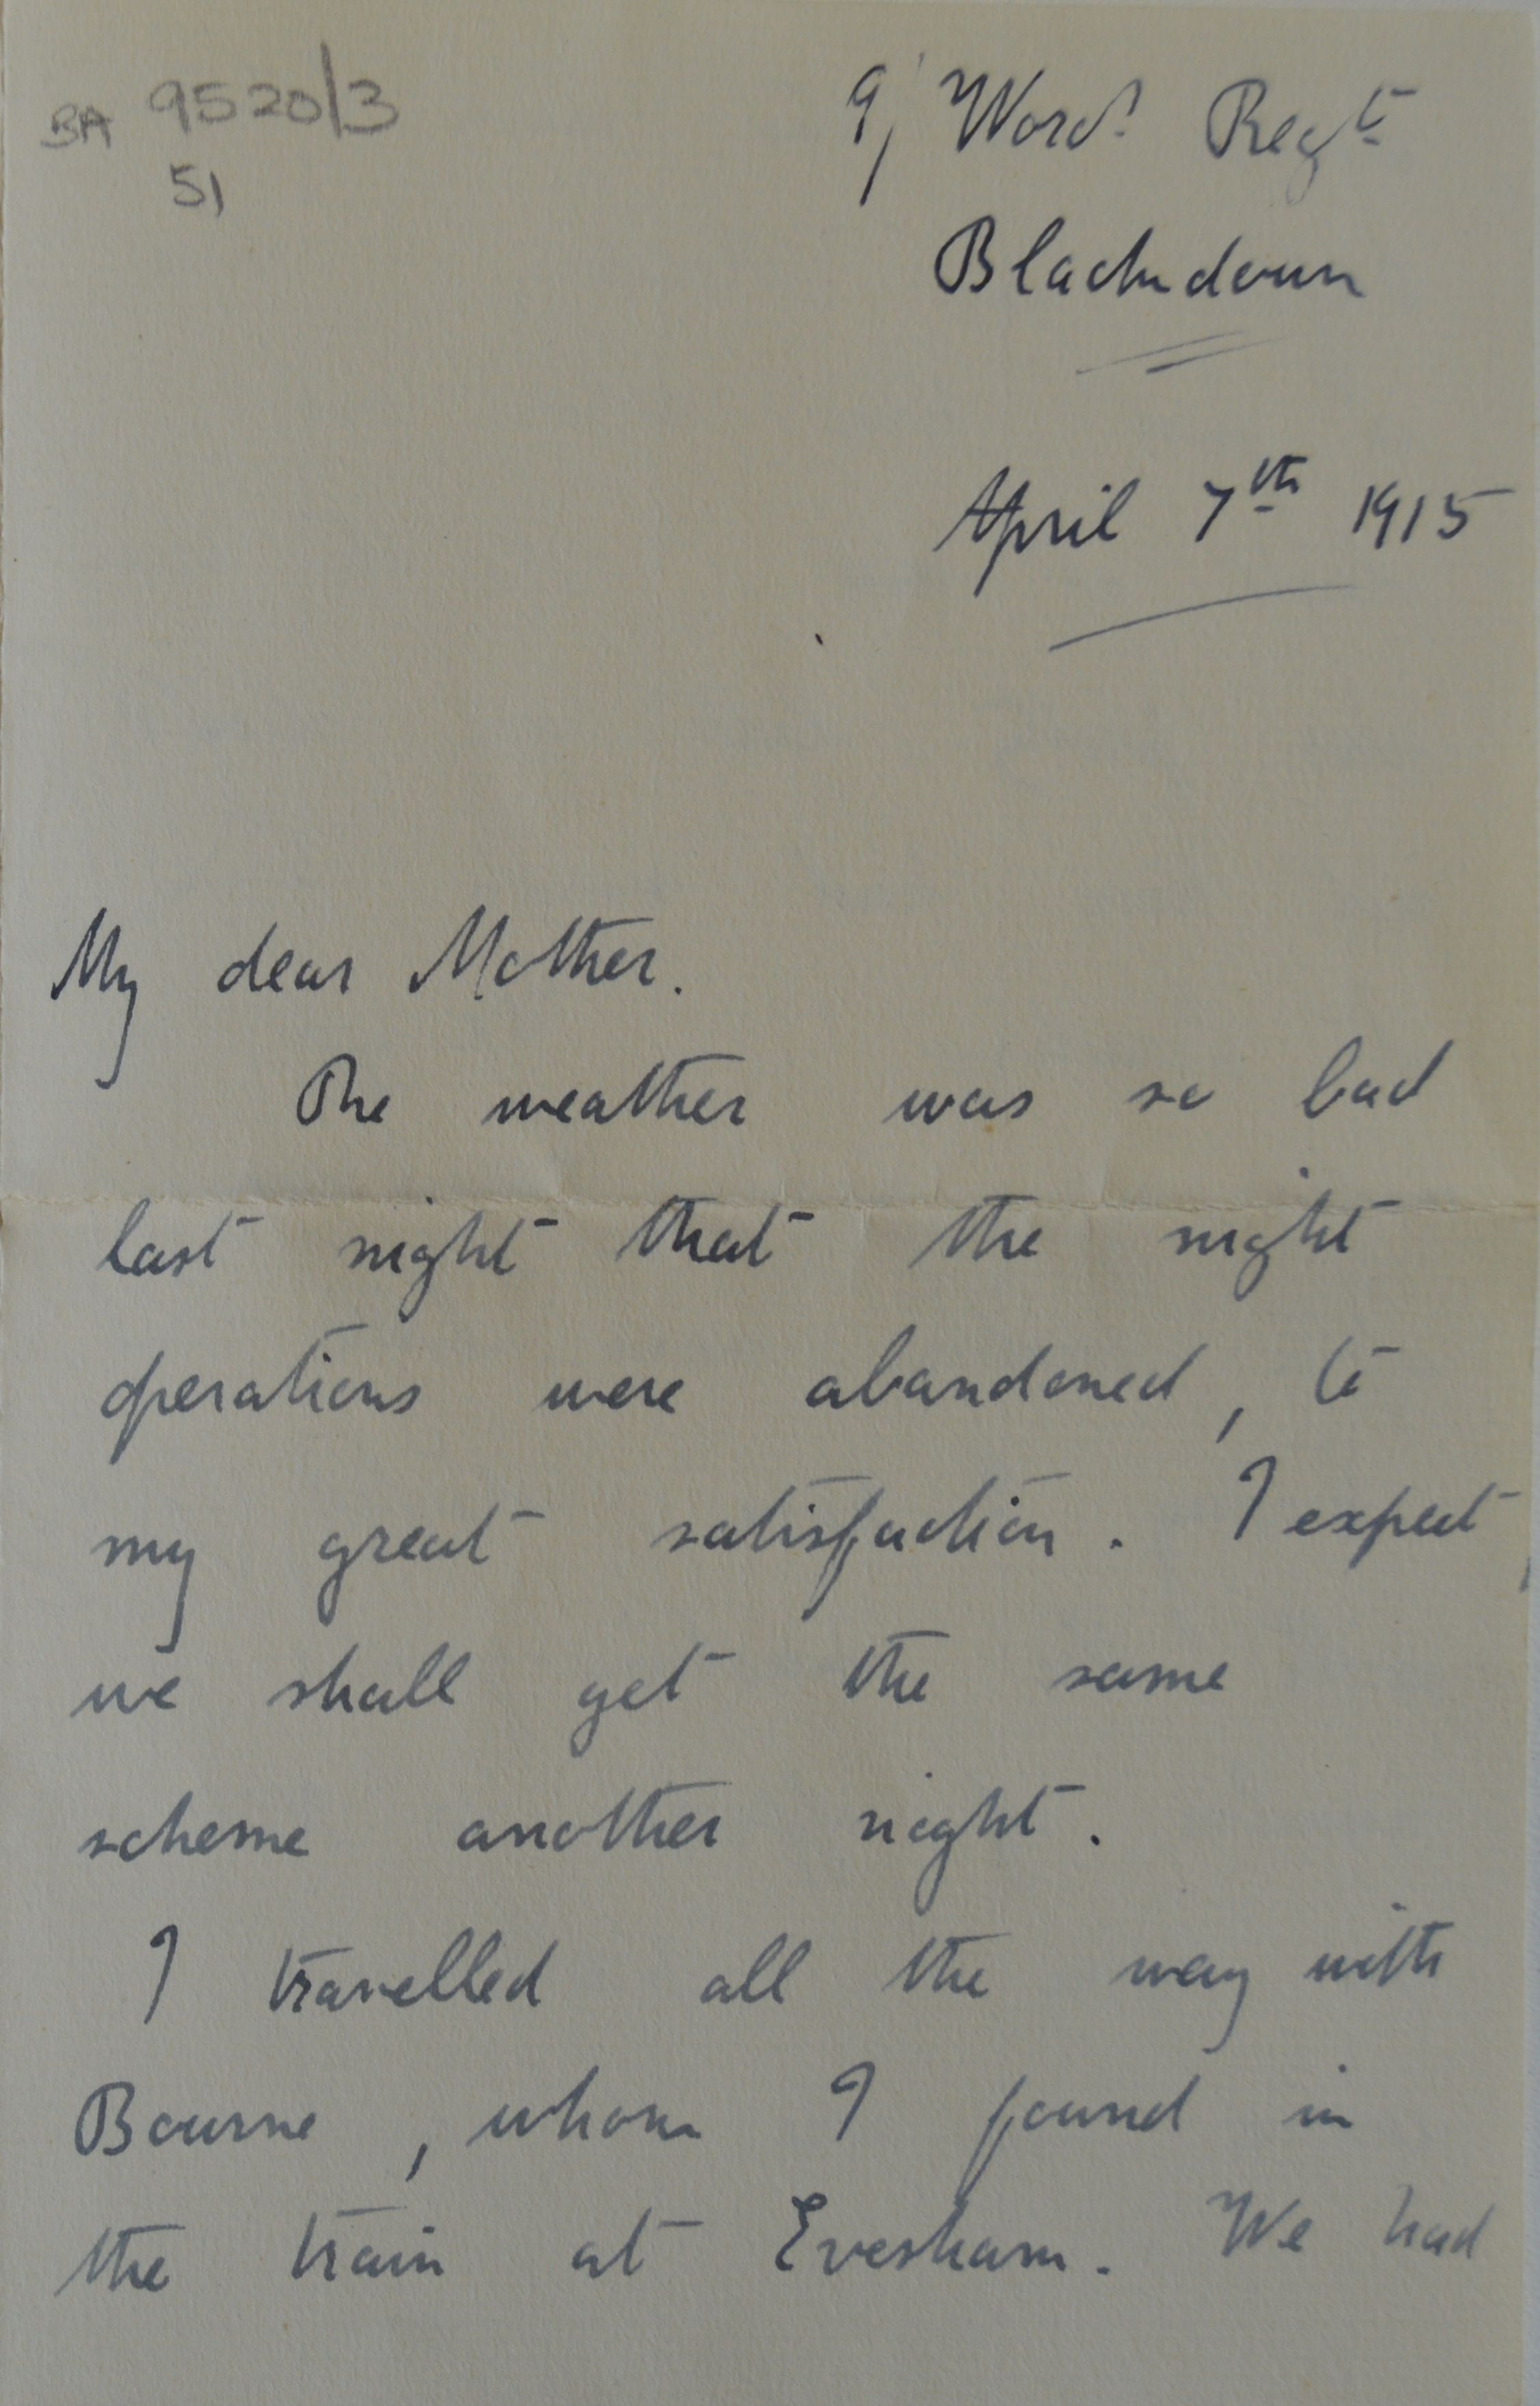 BA 9520/3
51
9/ Worc. Regt
Blackdown
April 7th 1915
My dear Mother.
The weather was so bad
last night that the night
operations were abandoned, to
my great satisfaction. I expect
we shall get the same
scheme another night.
I travelled all the way with
Bourne, whom I found in
the train at Evesham. We had